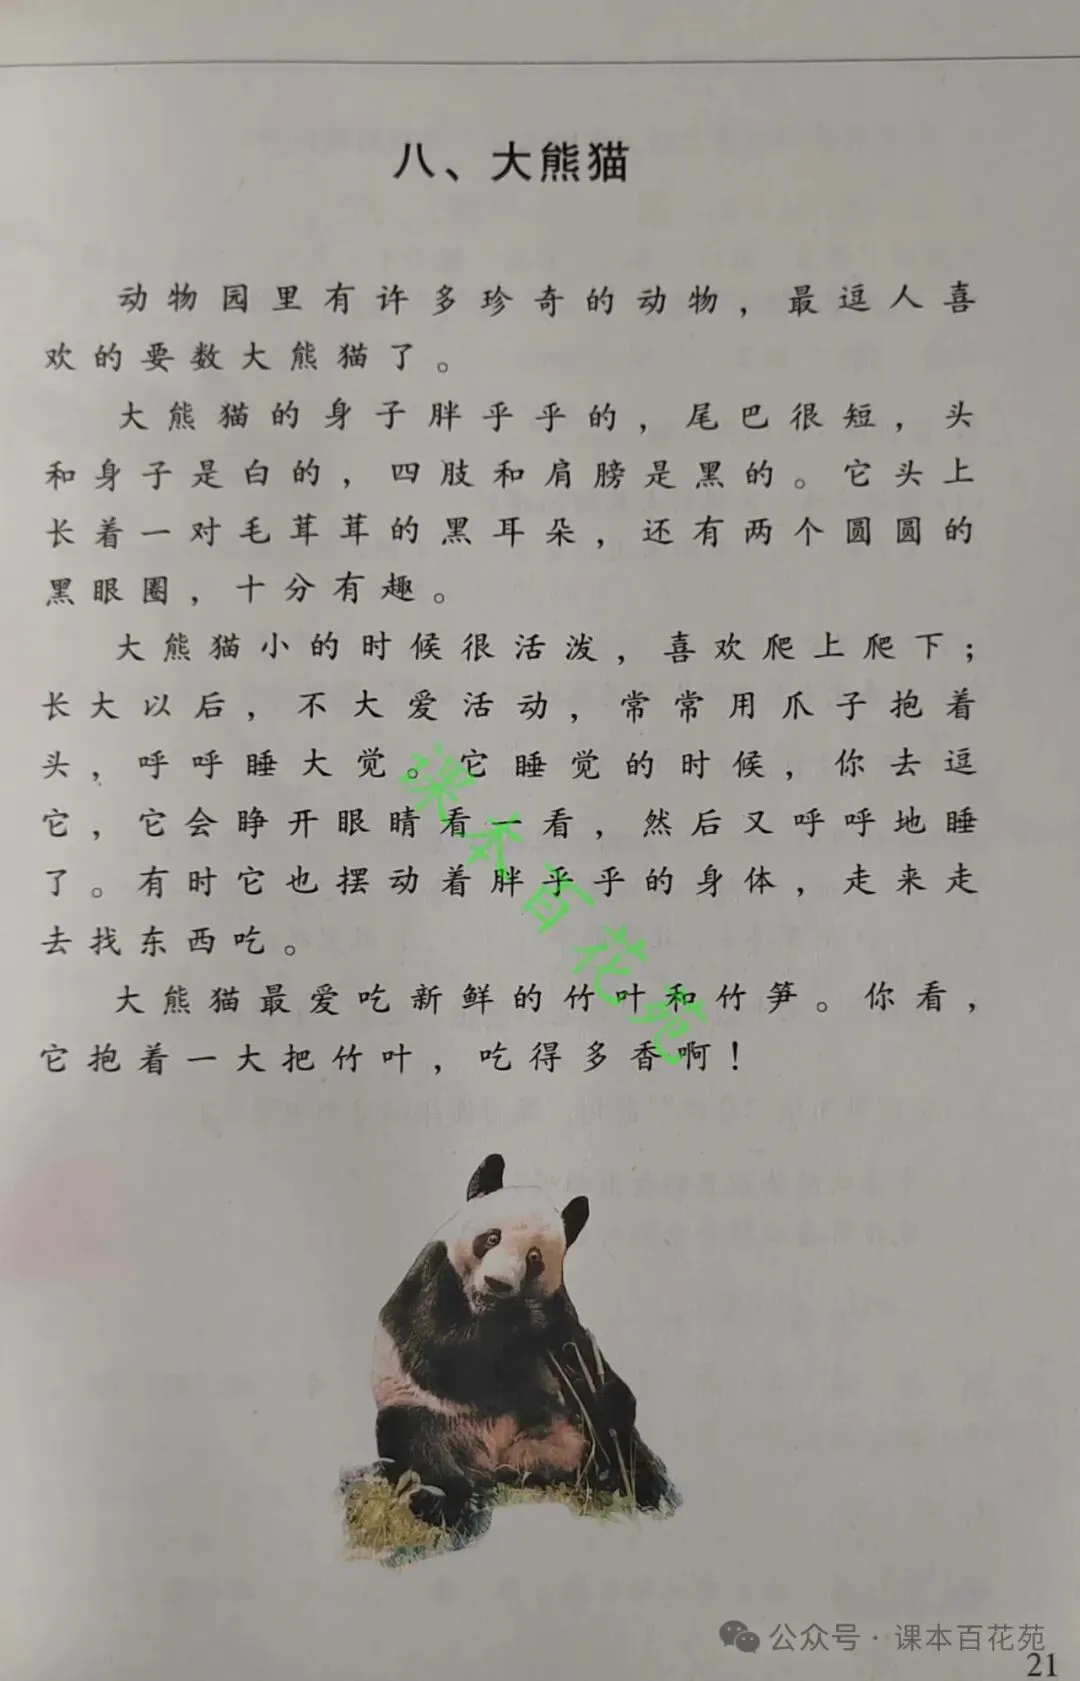 八、大熊猫
动物园里有许多珍奇的动物，最逗人喜
欢的要数大熊猫了。
大熊猫的身子胖乎乎的，尾巴很短，头
和身子是白的，四肢和肩膀是黑的。它头上
长着一对毛茸茸的黑耳朵，还有两个圆圆的
黑眼圈，十分有趣。
大熊猫小的时候很活泼，喜欢爬上爬下；
长大以后，不大爱活动，常常用爪子抱着
头，呼呼睡大觉。它睡觉的时候，你去逗
它，它会睁开眼睛看一看，然后又呼呼地睡
了。有时它也摆动着胖乎乎的身体，走来走
去找东西吃。
大熊猫最爱吃新鲜的竹叶和竹笋。你看，
它抱着一大把竹叶，吃得多香啊！
课本百花苑
公众号·课本百花苑
21